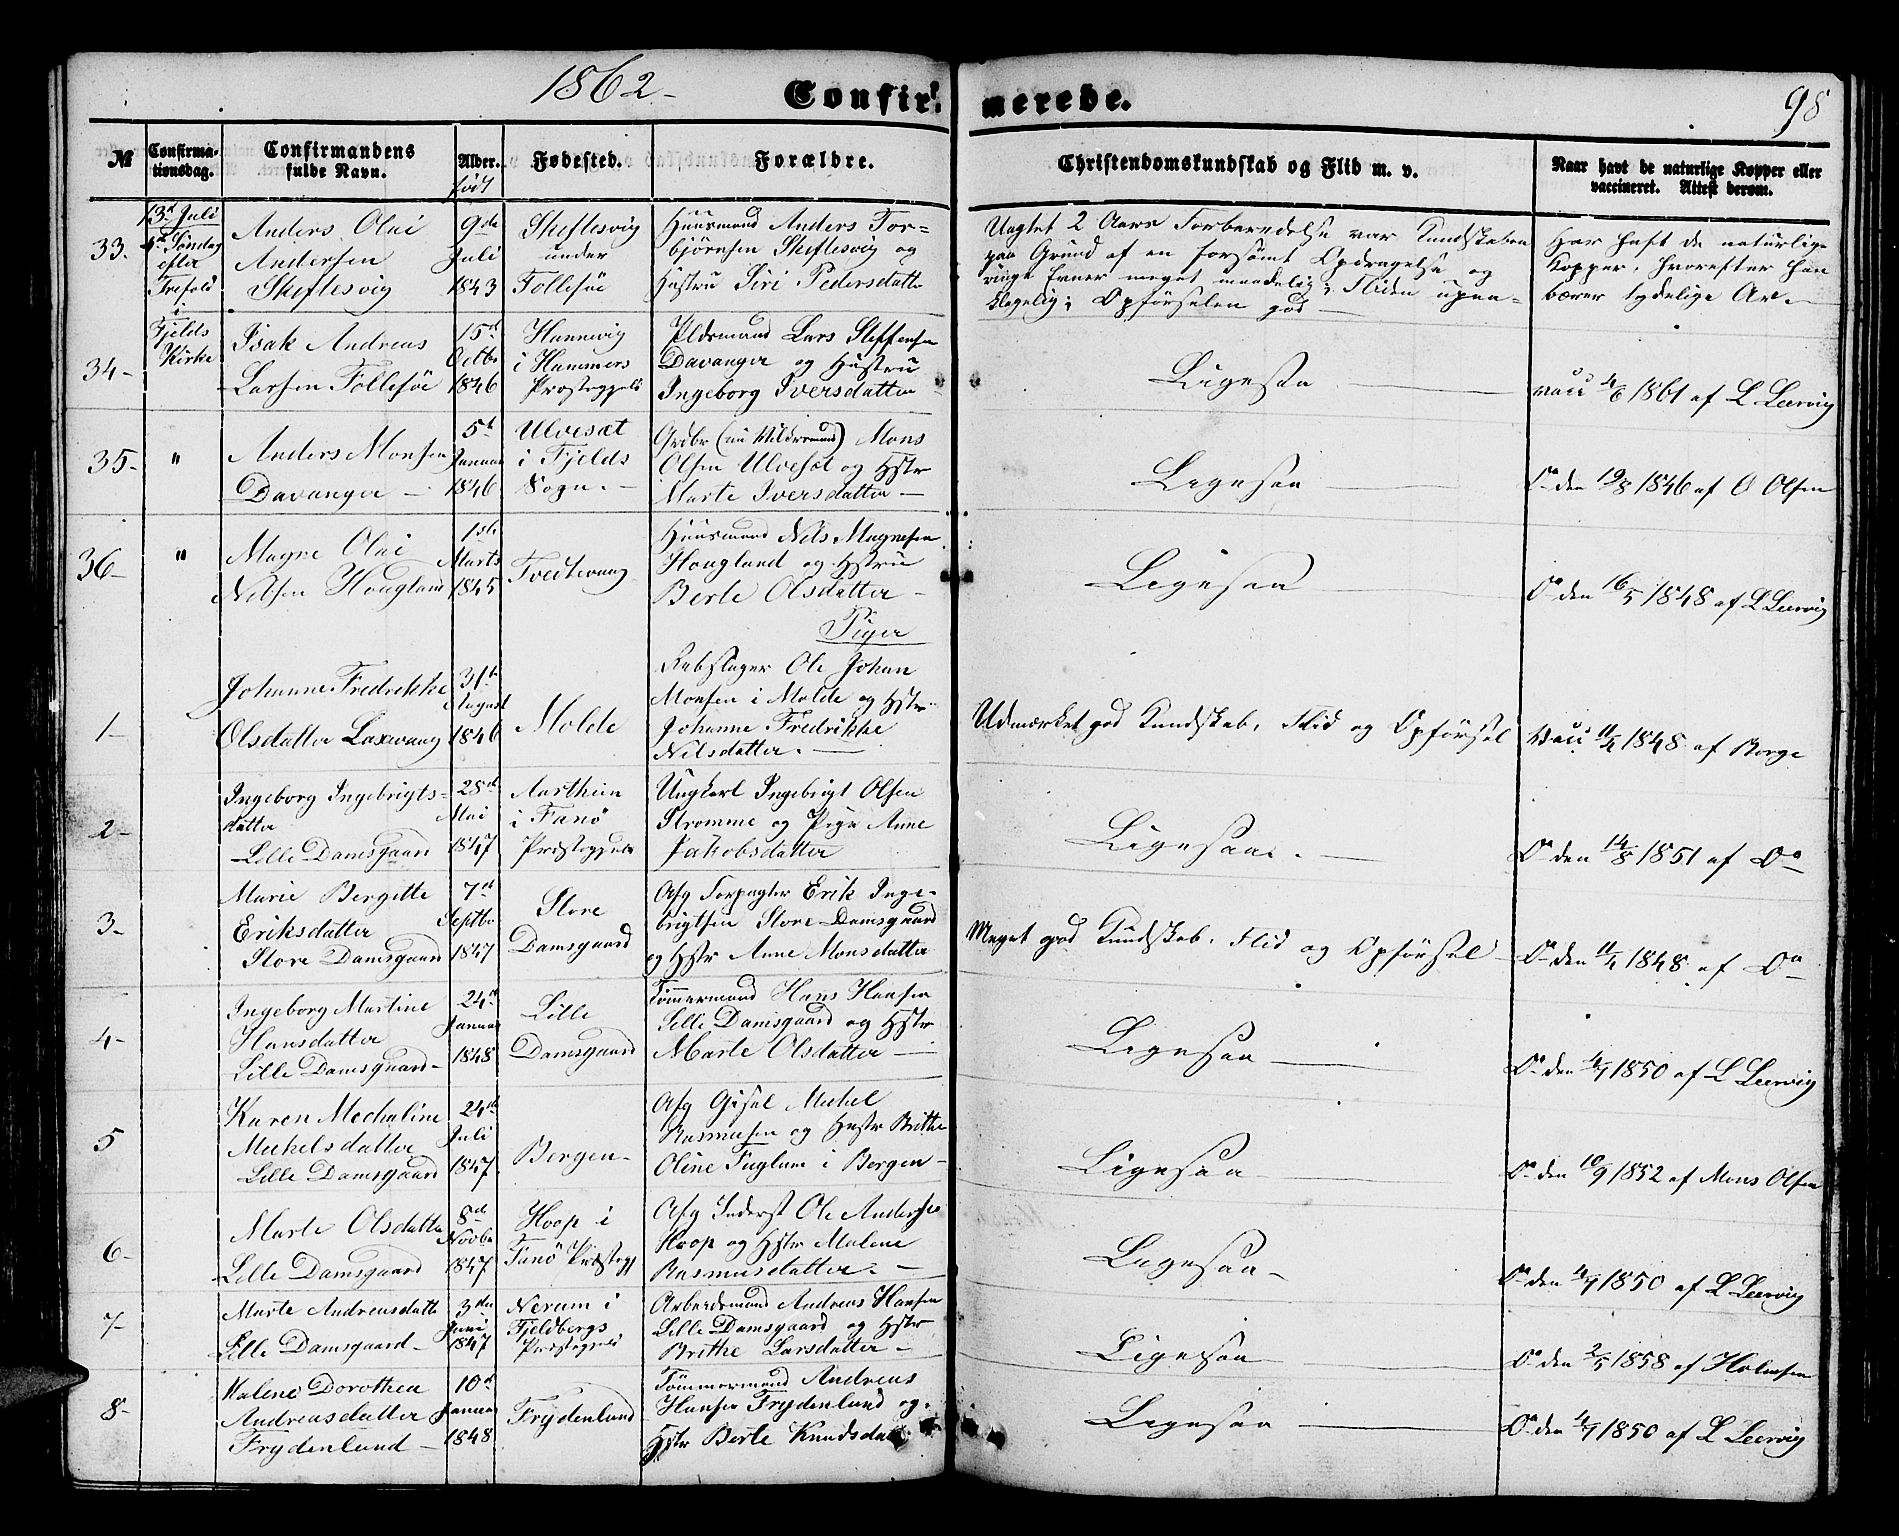 1862-
Confir-
merede.
98
№
Confirma-
tionsdag.
Confirmandens
fulde Navn.
Alder.
født
Fødested.
Forældre.
Christendomskundskab og Flid m. v.
Naar havt de naturlige Kopper eller
vaccineret. Attest derom.
33.
13de Juli
4de Søndag
efter
Trefold
i
Fjelds
Kirke
Anders Olai
Andersen
Skiftesvig
9de
Juli
1843
Skiftesvig
under
Follesöe
Huusmand Anders Tor-
björnsen Skiftesvig og
Hustru Siri Pedersdatter
Uagtet 2 Aars Forberedelse var Kundskaben
paa Grund af en forsömt Opdragelse og
ringe Evner meget maadelig; Fliden upaa-
klagelig; Opførselen god
Har haft de naturlige
Kopper, hvorefter han
bærer tydelige Ar.
34-
Isak Andreas
Larsen Follesöe
15de
Octbr
1846
Hannevig
i Hammers
Præstegjeld
Lars Steffensen
Davanger og Hustru
Ingeborg Iversdatter
Ligesaa
vacc 4/6 1861 af L Leervig
35-
"
Anders Monsen
Davanger -
5te
Januar
1846
Ulvesæt
i Fjelds
Sogn. -
Grdbr (nu Kildremand) Mons
Olsen Ulvesæt og Hstr
Marte Iversdatter -
Ligesaa
Do den 19/8 1846 af O Olsen
36-
"
Magne Olai
Nilsen Hougland
1ste
Marts
1845
Tvedtevaag
Huusmand Nils Magnesen
Hougland og Hstru
Berte Olsdatter -
Ligesaa
Do den 16/5 1848 af L Leervig
Piger
1-
Johanne Fredrikke
Olsdatter Laxevaag
31te
August
1846
Molde
Rebslager Ole Johan
Monsen i Molde og Hstr
Johanne Fredrikke
Nilsdatter. -
Udmærket god Kundskab, Flid og Opførsel
Vacc 11/4 1848 af Borge
2-
Ingeborg Ingebrigts-
datter
Lille Damsgaard
28de
Mai
1847
Aartheim
i Fanø
Præstegjeld
Ungkarl Ingebrigt Olsen
Stromme og Pige Anne
Jakobsdatter
Ligesaa. -
Do den 14/8 1851 af Do
3-
Marie Bergitte
Eriksdatter
Store Damsgaard
7de
Septbr
1847
Store
Damsgaard
Afg Forpagter Erik Inge-
brigtsen Store Damsgaard
og Hstr Anne Monsdatter
Meget god Kundskab, Flid og Opførsel
Do den 11/4 1848 af Do
4-
Ingeborg Martine
Hansdatter
Lille Damsgaard-
24de
Januar
1848
Lille
Damsgaard
Tømmermand Hans Hansen
Lille Damsgaard og Hstr
Marte Olsdatter -
Ligesaa
Do den 4/9 1850 af L Leervig
5
Karen Mechaline
Michelsdatter
Lille Damsgaard
24de
Juli
1847
Bergen-
Afg Gisel Michel
Rasmusen og Hustr Brithe
Oline Fuglum i Bergen-
Ligesaa
Do den 10/9 1852 af Mons Olsen
6-
Marte Olsdatter
Lille Damsgaard
8de
Novbr
1847
Hoop i
Fanö Præstegj
Afg Inderst Ole Andersen
Hoop og Hstr Malene
Rasmusdatter. -
Ligesaa-
Do den 4/9 1850 af L Leervig
7-
Marte Andreasdatter
Lille Damsgaard-
3die
Juni
1847
Nerum i
Fjeldbergs
Præstegjeld
Arbeidsmand Andreas Hansen
Lille Damsgaard og Hstr
Brithe Larsdatter -
Ligesaa
Do den 2/5 1858 af Holmsen
8-
Malene Dorothea
Andreasdatter
Frydenlund-
10de
Januar
1848
Frydenlund
Tømmermand Andreas
Hansen Frydenlund og
Hstr Berte Knudsdatter
Ligesaa
Do den 4/9 1850 af L Leervig